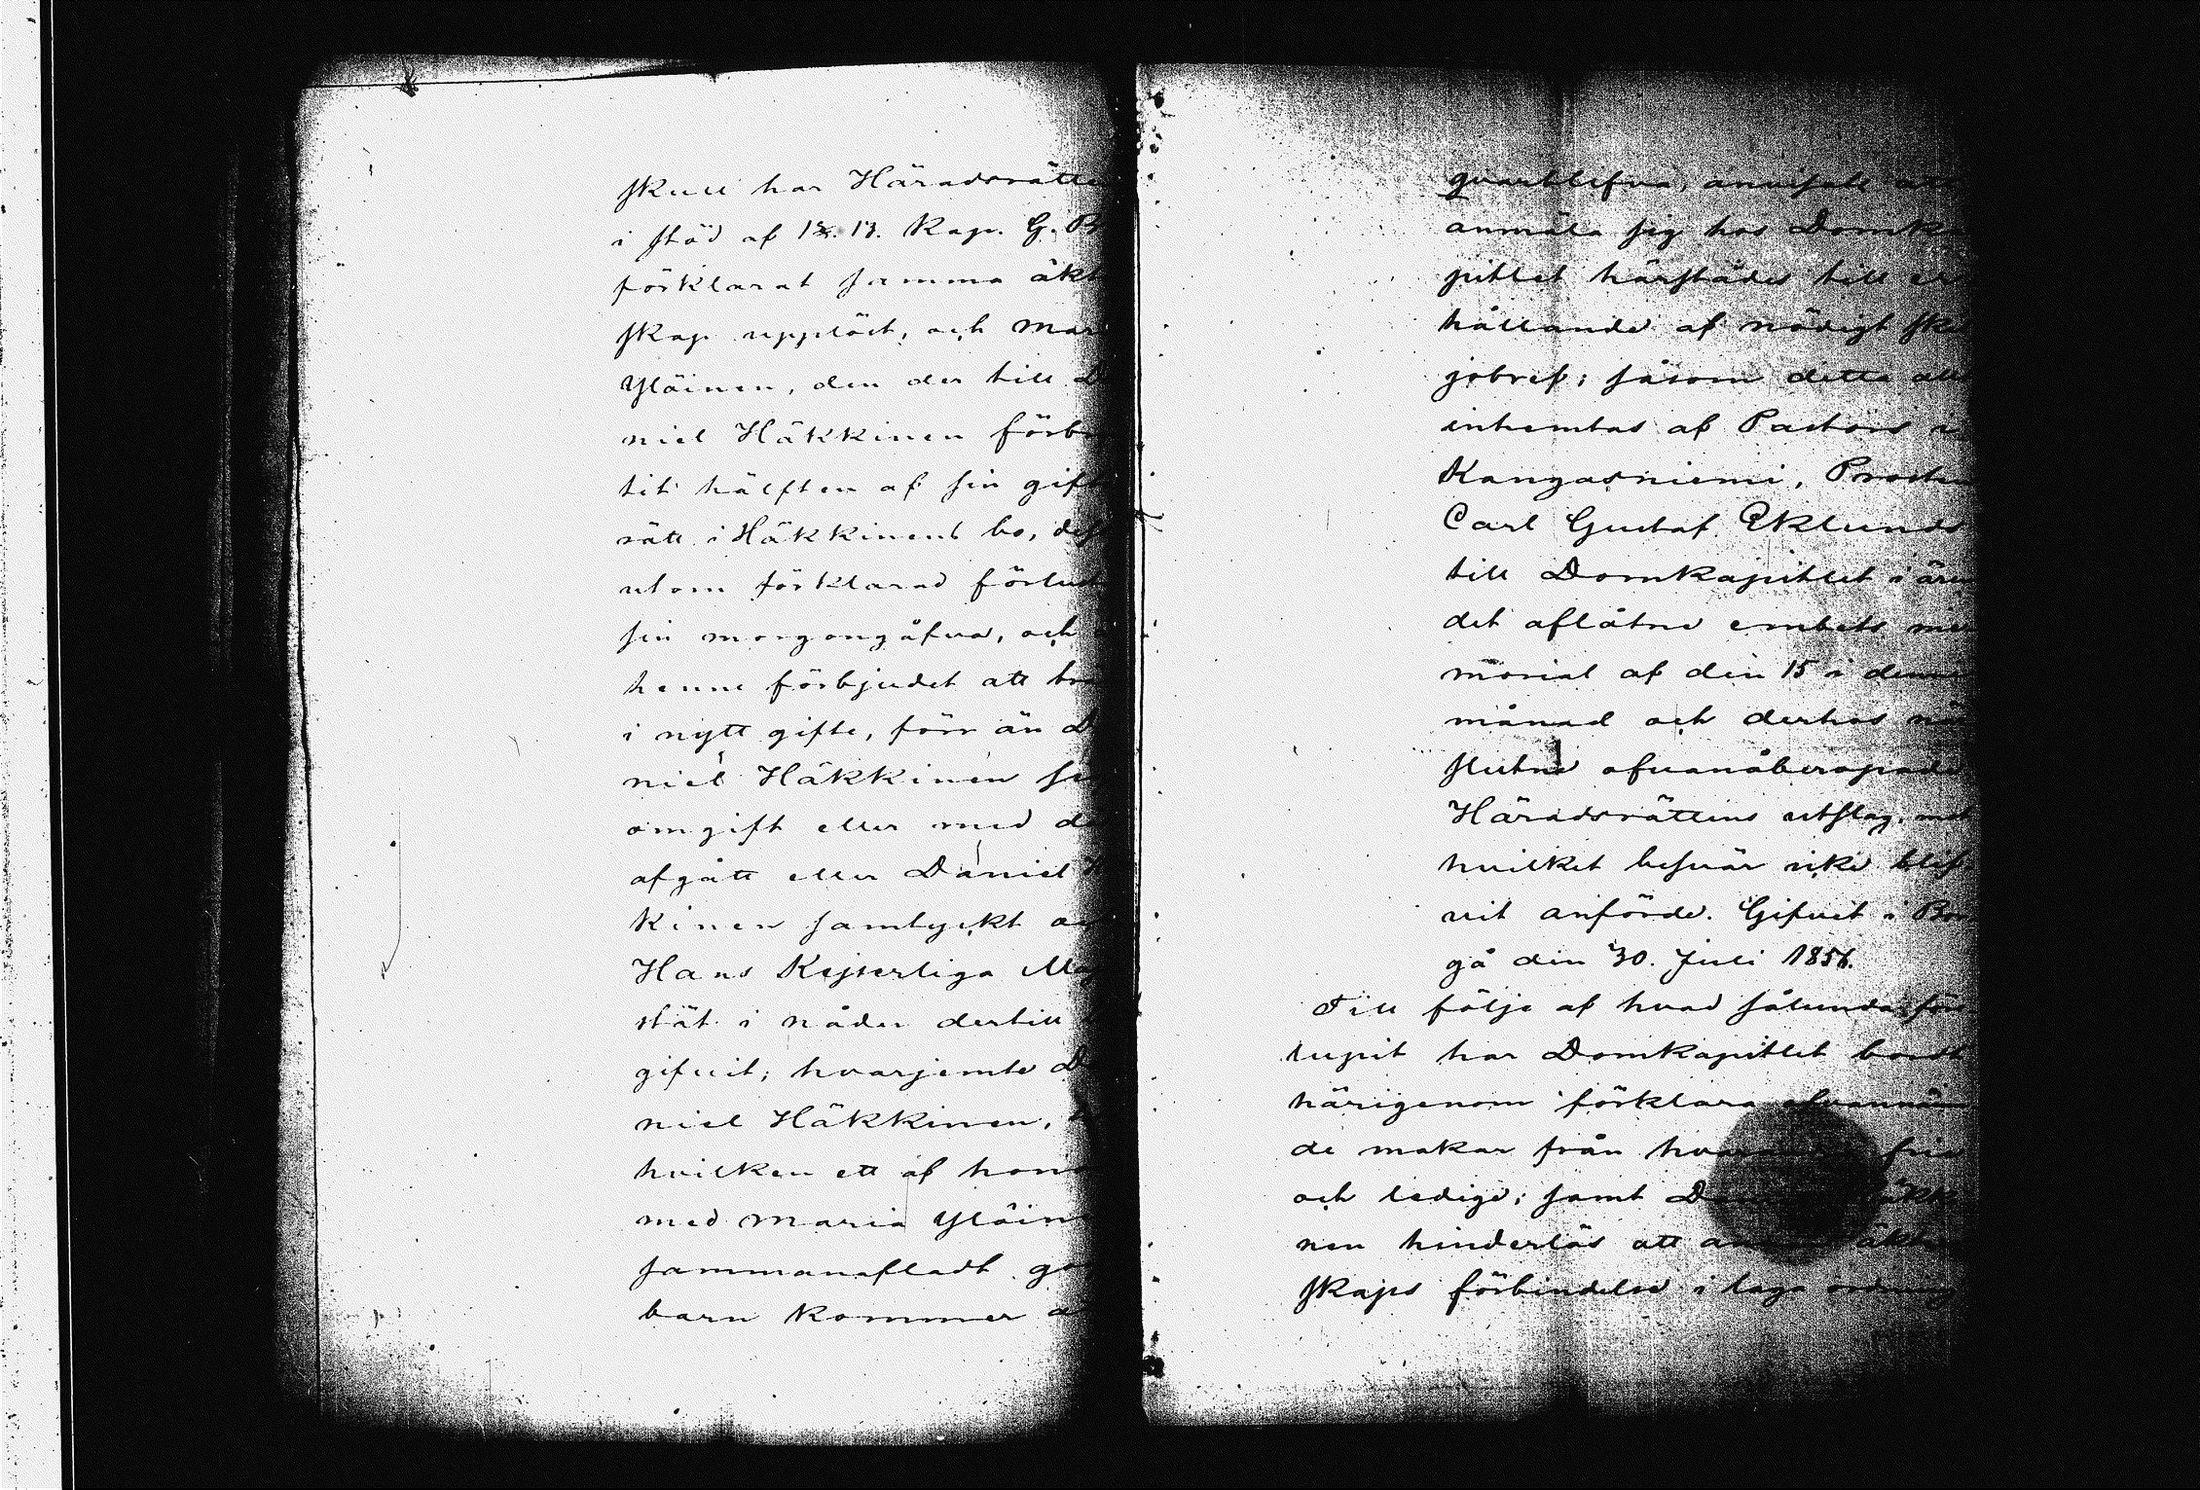 skull har Häradsrätte
i stöd af 1 §. 13. Kap. G. B
förklarat samma äkt
skap upplöst, och Mar
Yläinen, den der till D
niel Häkkinen förb
tit hälften af sin gift
rätt i Häkkinens bo, des
utom förklarad förlust
sin morgongåfva, och
henne förbjudet att trä
i nytt gifte, förr än D
niel Häkkinen
omgift eller med dö
afgått eller Daniel H
kinen samtyckt
Hans Kejserliga Maj
stät i nåder dertill
gifvit; hvarjemte D
niel Häkkinen,
hvilken ett af hono
med Maria Yläin
sammanafladt
barn kommer a
qvarblifva, anvisats att
anmäla sig hos Domka
pitlet härstädes till er
hållande af nödigt skil
jobref; såsom detta allt
inhemtas af Pastors i
Kangasniemi, Prosten
Carl Gustaf Eklunds
till Domkapitlet i ären
det aflåtne embets me
morial af den 15 i denne
månad och derhos när
slutne ofvanåberopade
Häradsrättens utslag, mot
hvilket besvär icke blif
vit anförde. Gifvet i Bor
gå den 30. Juli 1856.
Till följe af hvad sålunda för
lupit har Domkapitlet bordt
härigenom förklara ofvannäm
de makar från fria
och ledige; samt äkki
nen hinderlös att äkten
skaps förbindelse i laga ordning